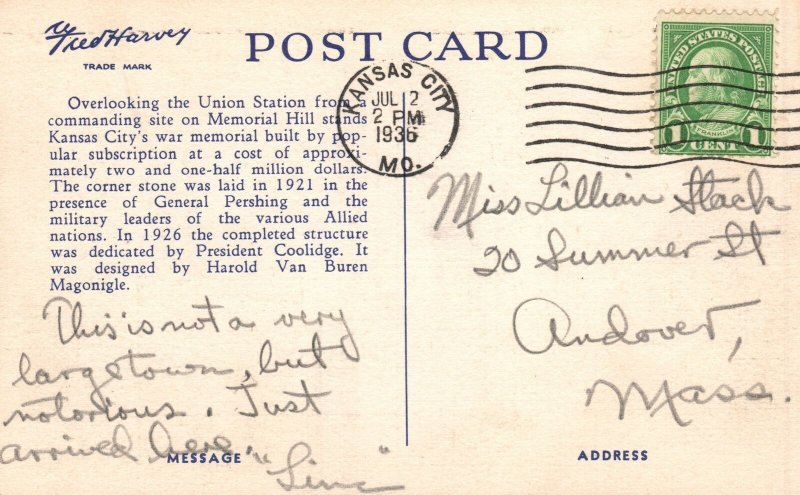 Fred Harvey
TRADE MARK
POST CARD
KANSAS CITY
JUL 2
2 PM
1936
MO.
UNITED STATES POSTAGE
FRANKLIN
1 CENT 1
Overlooking the Union Station from a
commanding site on Memorial Hill stands
Kansas City's war memorial built by pop-
ular subscription at a cost of approxi-
mately two and one-half million dollars.
The corner stone was laid in 1921 in the
presence of General Pershing and the
military leaders of the various Allied
nations. In 1926 the completed structure
was dedicated by President Coolidge. It
was designed by Harold Van Buren
Magonigle.
This is not a very
large town, but
notorious. Just
arrived here
"Linc"
MESSAGE
Miss Lillian Stack
20 Summer St
Andover,
Mass.
ADDRESS